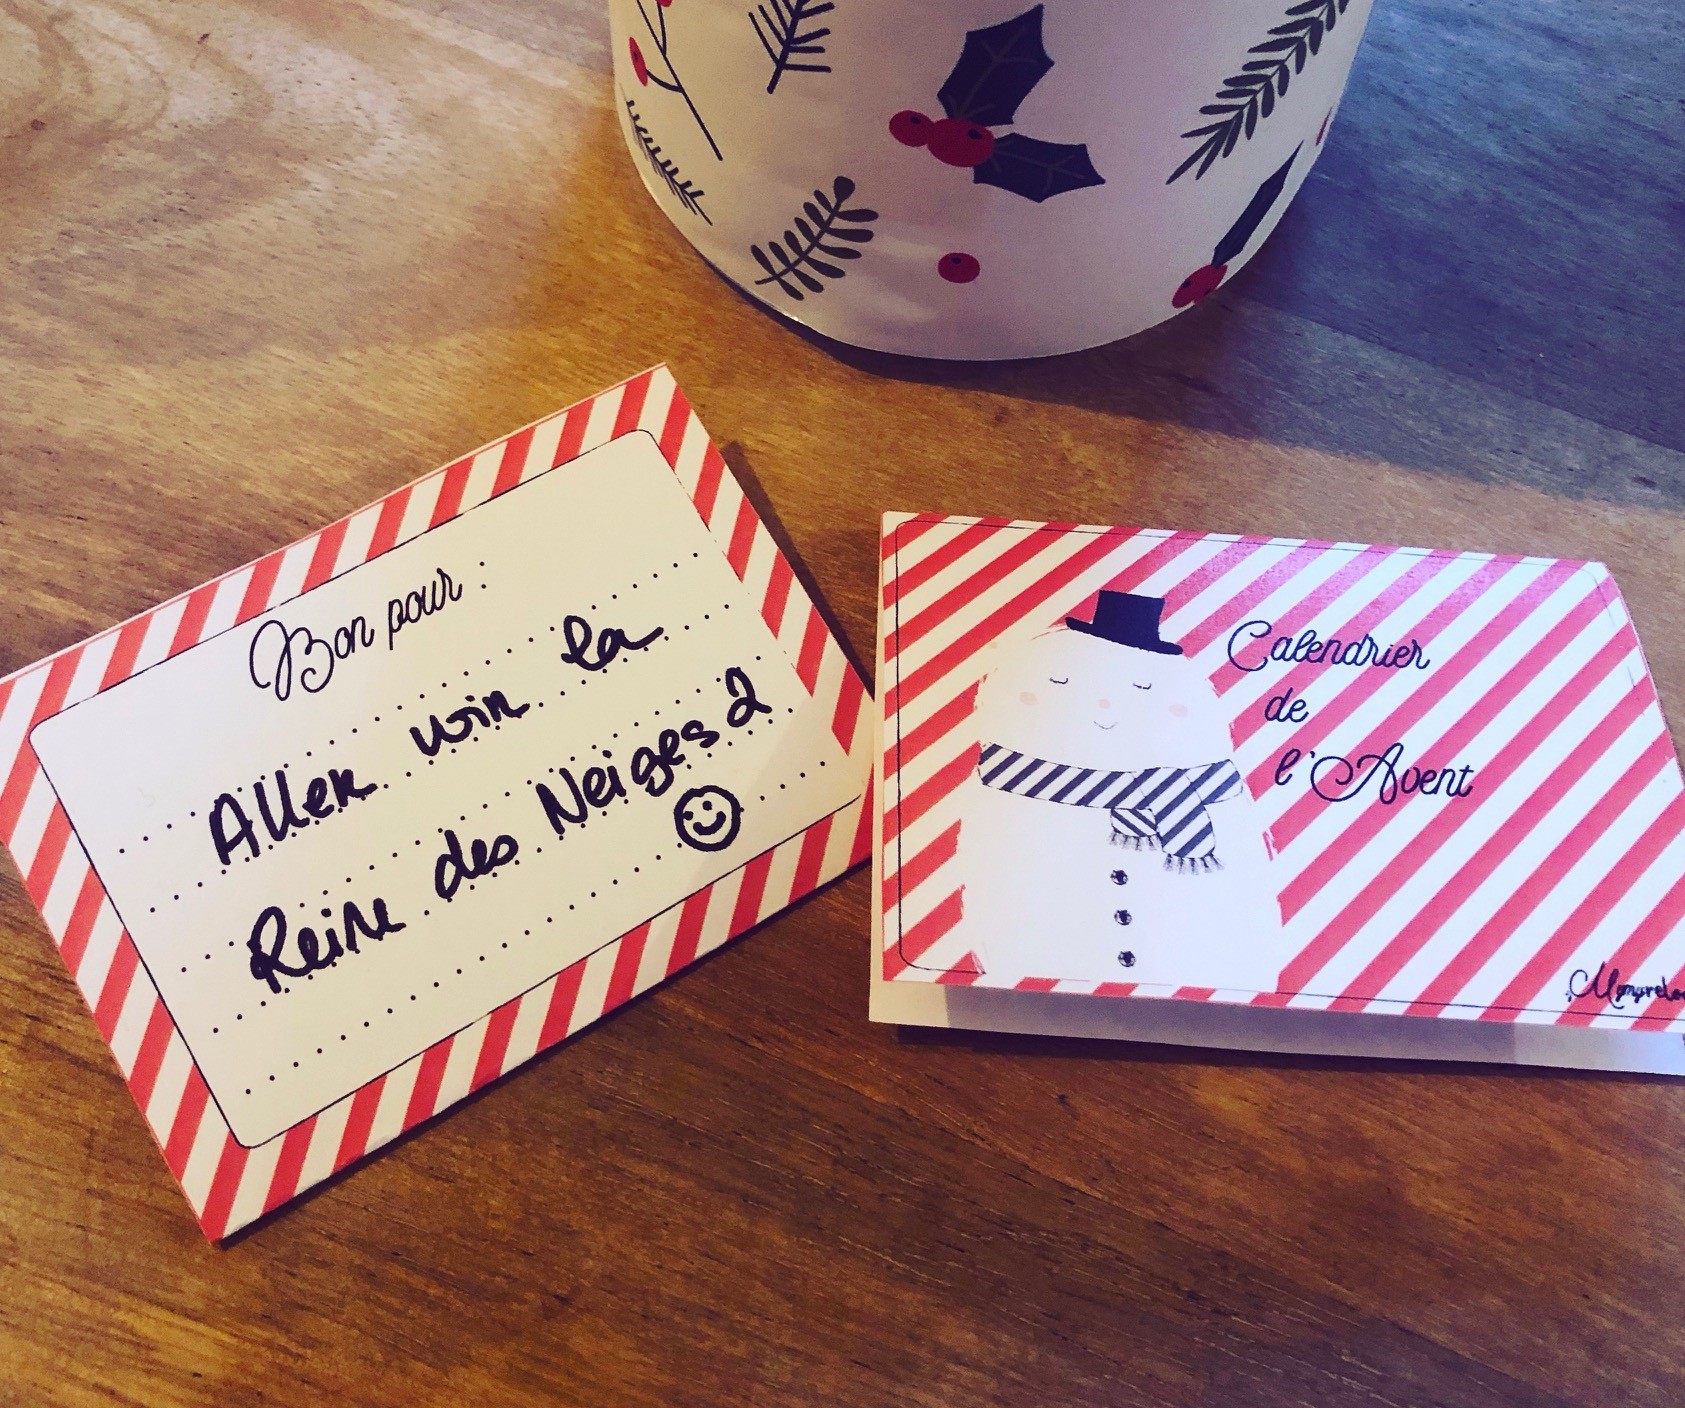 Bon pour :
Aller voir la
Reine des Neiges 2
Calendrier
de
l'Avent